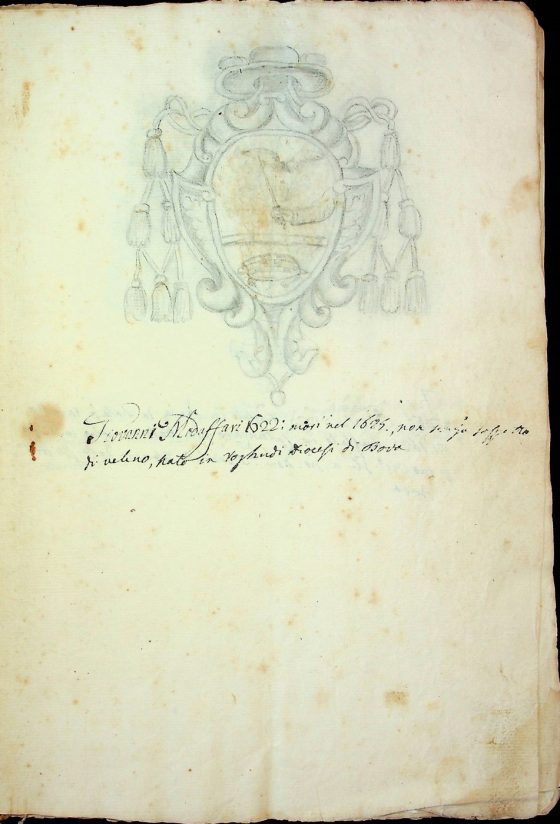 Giovanni Modaffari 1622: morì nel 16 , non senza sospetto
di veleno, nato in Roghudi Diocesi di Bova